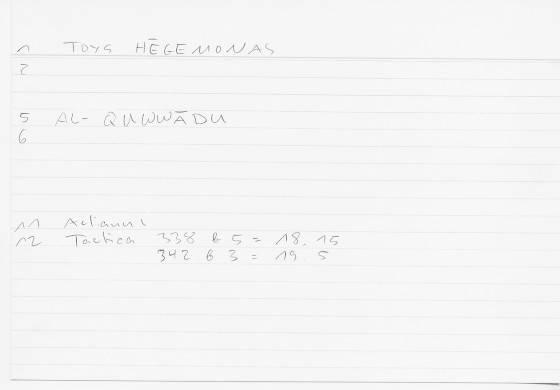 1 TOYS HĒGEMONAS
2
5 AL- QUWWĀDU
6
11 Aelianus
12 Tactica 338 b 5 = 18. 15
342 b 3 = 19. 5